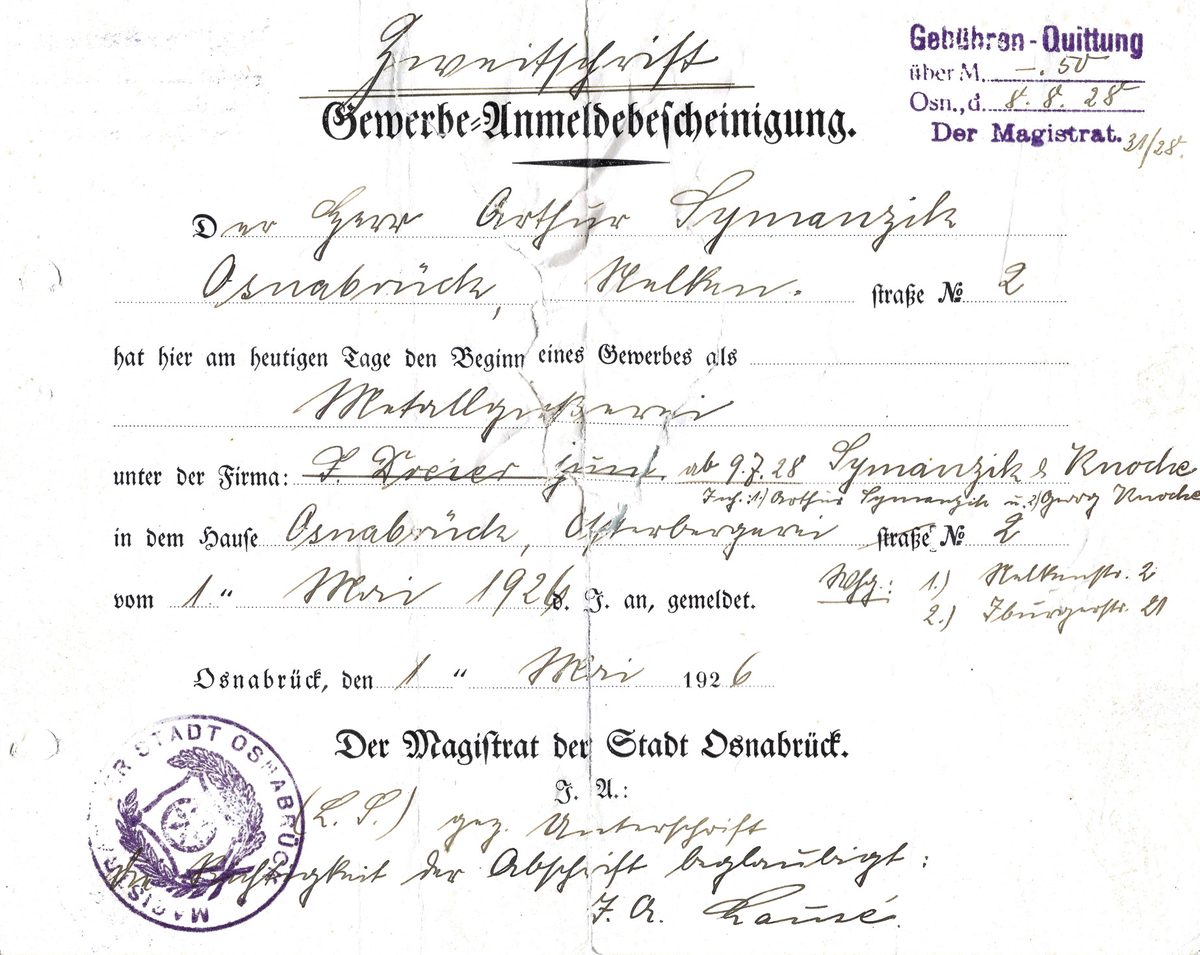 Zweitschrift
Gewerbe-Anmeldebescheinigung.
Gebühren-Quittung
über M. —.50
Osn., d. 8. 8. 28
Der Magistrat.
31/28.
Der Herr Arthur Symanzik
Osnabrück, Nelken- straße № 2
hat hier am heutigen Tage den Beginn eines Gewerbes als
Metallgießerei
unter der Firma: jun. ab 9.7.28 Symanzik & Knoche
Inh.: 1) Arthur Symanzik u. 2) Georg Knoche
in dem Hause Osnabrück, Osterbergerei straße № 2
vom 1" Mai 1926 d. J. an, gemeldet.
Whg.: 1.) Nelkenstr. 2
2.) Iburgerstr. 21
Osnabrück, den 1" Mai 1926
Der Magistrat der Stadt Osnabrück.
J. A.:
(L. S.) gez. Unterschrift
Die Richtigkeit der Abschrift beglaubigt:
J. A.
MAGISTRAT DER STADT OSNABRÜCK